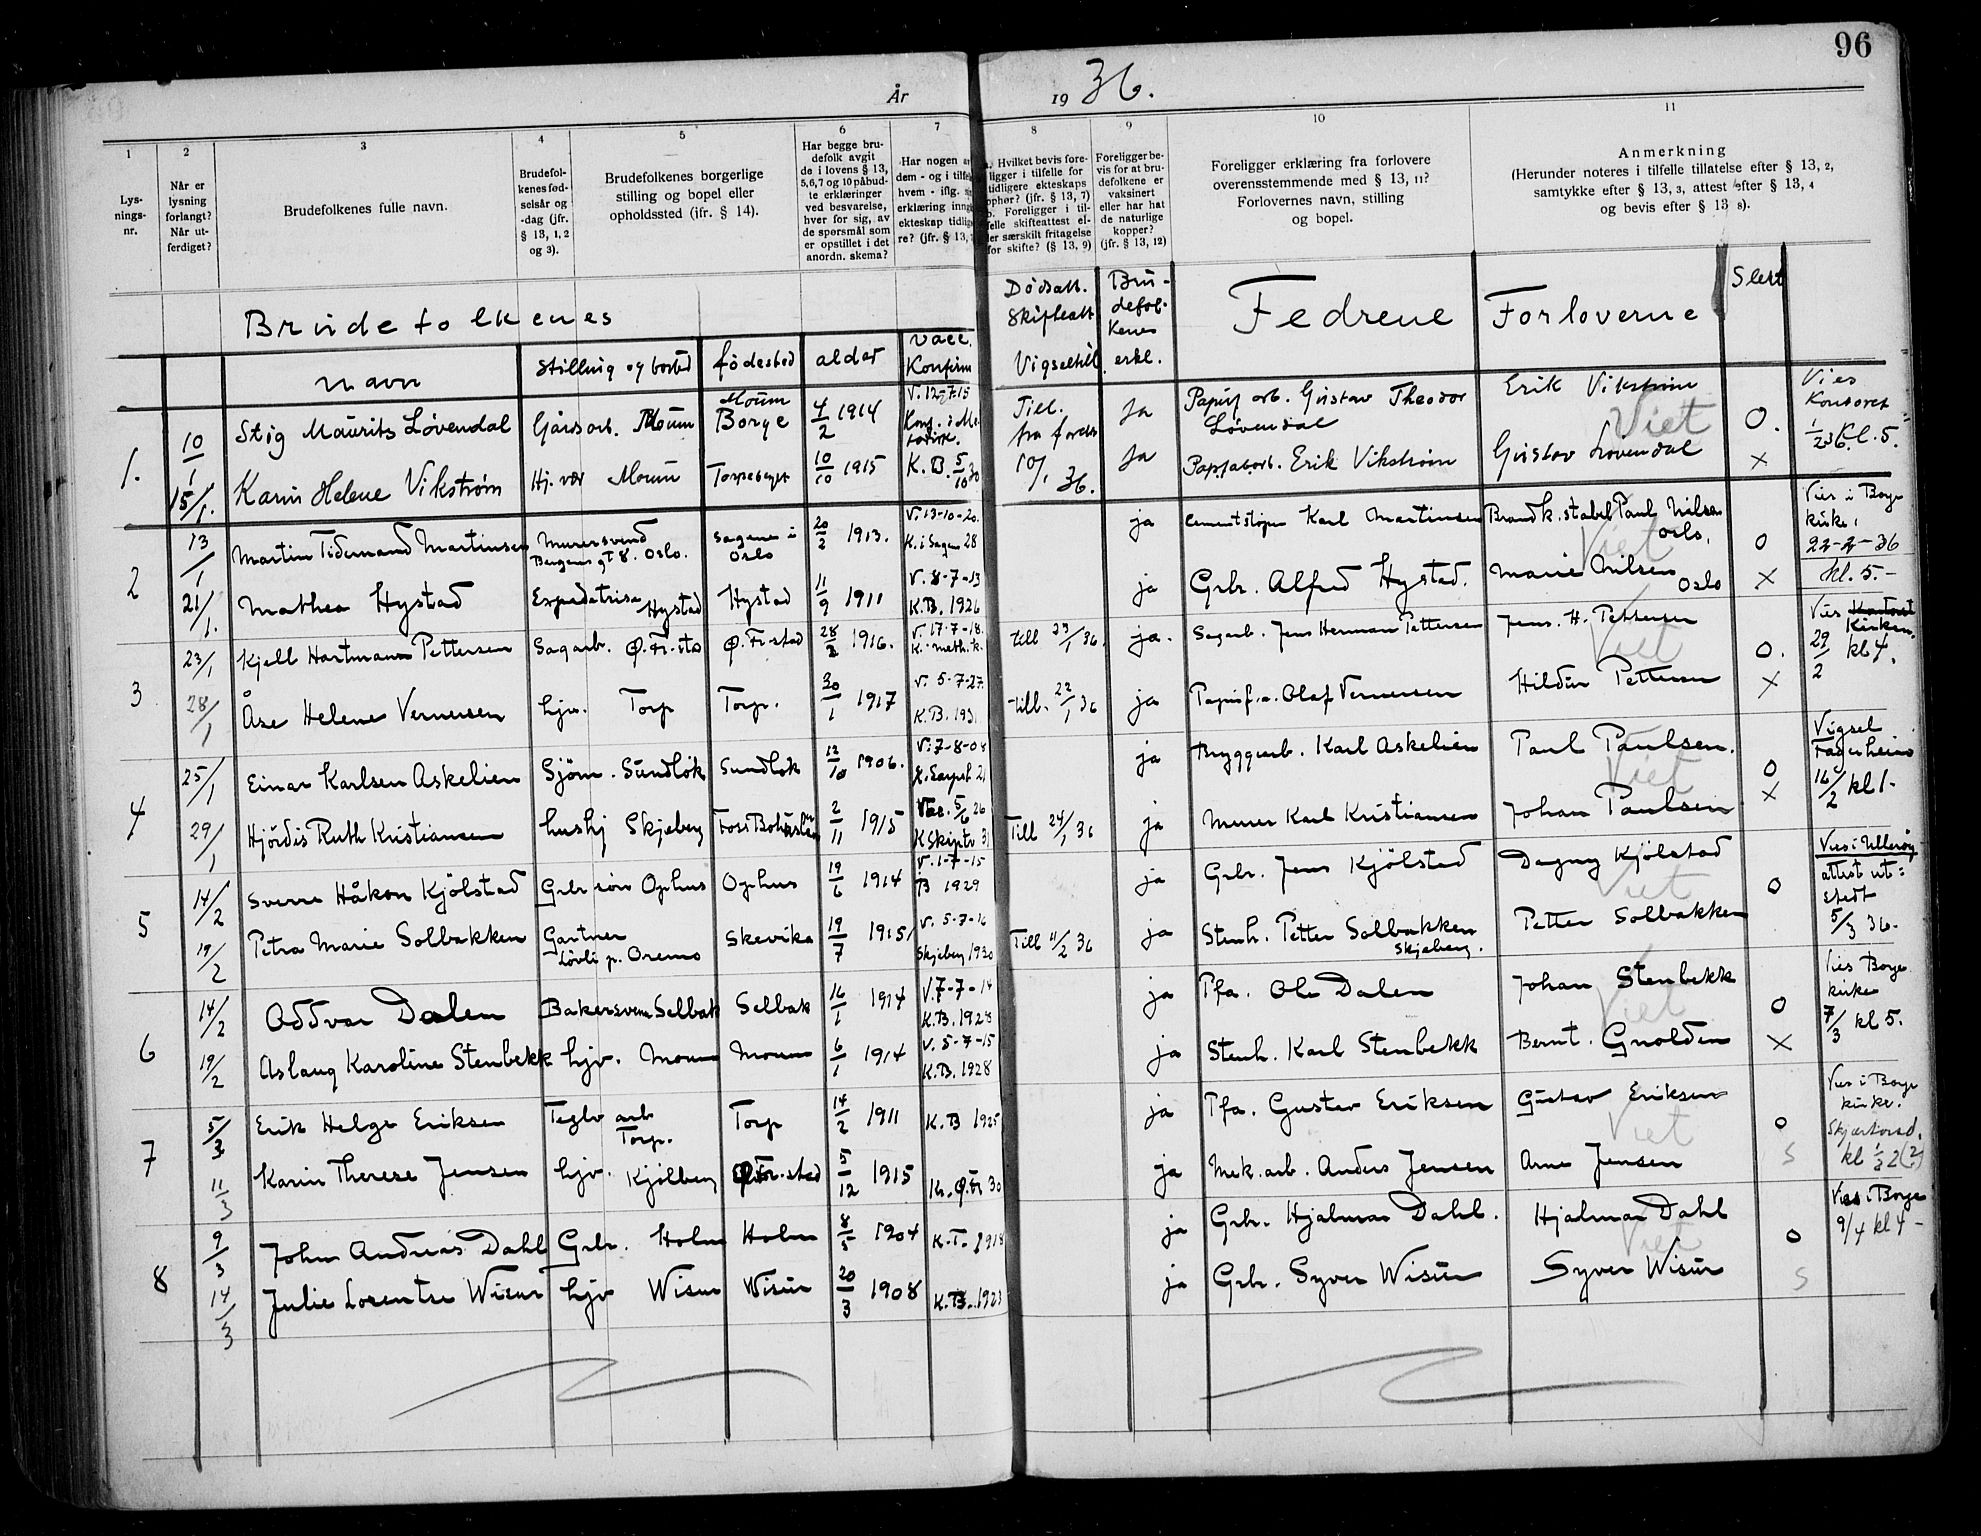 96
År 1936.
1 2 3 4 5 6 7 8 9 10 11
Lys-
nings-
nr.
Når er
lysning
forlangt?
Når ut-
ferdiget?
Brudefolkenes fulle navn.
Brudefol-
kenes fød-
selsår og
-dag (jfr.
§ 13, 1, 2
og 3).
Brudefolkenes borgerlige
stilling og bopel eller
opholdssted (ifr. § 14).
Har begge bru-
defolk avgit
de i lovens § 13,
5,6,7 og 10 påbud-
te erklæringer
ved besvarelse,
hver for sig, av
de spørsmål som
er opstillet i det
anordn. skema?
Har nogen
dem - og i tilf
hvem - iflg.
erklæring inng
ekteskap tidlig
re? (jfr. § 13,
Hvilket bevis fore-
ligger i tilfelle for
tidligere ekteskaps
ophør? (jfr. § 13, 7)
Foreligger i til-
felle skifteattest el-
ler særskilt fritagelse
for skifte? (§ 13, 9)
Foreligger be-
vis for at bru-
defolkene er
vaksinert
eller har hat
de naturlige
kopper?
(jfr. § 13, 12)
Foreligger erklæring fra forlovere
overensstemmende med § 13, 11?
Forlovernes navn, stilling
og bopel.
Anmerkning
(Herunder noteres i tilfelle tillatelse efter § 13, 2,
samtykke efter § 13, 3, attest efter § 13, 4
og bevis efter § 13 8).
Brudefolkenes
navn
Stilling og bosted
fødested
alder
Vacc.
Konfirm
Dødsatt.
Skifteatt
Vigseltill.
Bru-
defol-
kenes
erkl.
Fedrene
Forloverne
Slekt
1. 10/1 Stig Maurits Løvendal Gårdsarb. Moum Moum Borge 4/2 1914 V. 12-7-15 Till. fra Ja Gustav Theodor Løvendal Erik Vikstrøm O. Vies Kontoret
15/1. Karin Helene Vikstrøm Hj. vær Moum 10/10 1915 K.B. 5/10 30 10/1 36. Ja Erik Vikstrøm Gustav Løvendal x 1/2 36 Kl. 5.
Viet
2 13/1 Martin Tidemand Martinsen Murersvend Bergens gt 8. Oslo. Sagene i Oslo 20/2 1913. V. 13-10-20. K. i Sagen 28 ja Cementstøper Karl Martinsen Brandk. stabel Paul Nilsen Oslo, o Vies i Borge kirke,
21/1. Mathea Hystad Expeditrise Hystad Hystad 11/9 1911 V. 8-7-13 K.B. 1926 ja Grbr. Alfred Hystad. Marie Nilsen Oslo x 22-2-36 kl. 5.-
Viet
3 23/1 Kjell Hartmann Pettersen Sagarb. Ø. Fr-sta Ø. Fr-stad 28/2 1916. V. 17-7-18. K. meth. k. till 23/1 36. ja. Sagarb. Jens Herman Pettersen Jens. H. Pettersen o. Vies Kontoret Kirken.
28/1 Åse Helene Vernersen hjv. Torp Torp. 30/1 1917 V. 5-7-27. K.B. 193 till. 22/1 36 ja Olaf Vernersen Hildur Pettersen x 29/2 kl 4.
Viet
4 25/1 Einar Karlsen Askelien Sjøm. Sundløk Sundløk 12/10 1906. V. 7-8-08 K. Sarpsb. 21 ja Bryggearb. Karl Askelien Paul Paulsen. o Vigsel Fagerheim
29/1 Hjördis Ruth Kristiansen hushj Skjeberg 2/11 1915 5/6 26 Till 24/1 36 ja Murer Karl Kristiansen Johan Paulsen x 16/2 kl 1-
Viet
5 14/2 Sverre Håkon Kjölstad Grbr sön Ophus Ophus 19/6 1914 V. 1-7-15 B 1929 ja Grbr. Jens Kjölstad Dagny Kjölstad o Vies i Ullerøy attest ut: stedt
19/2 Petra Marie Solbakken Gartner Løvli p. Oremo Skevika 19/7 1915 V. 5-7-16 Skjeberg 1930 Till 11/2 36 ja Stenh. Petter Solbakken Skjeberg. Petter Solbakken 5/3 36.
Viet
6 14/2 Oddvar Dalen Bakersvenn Selbak Selbak 16/1 1914 V. 7-7-14 K.B. 1928 ja Pfa. Ole Dalen Johan Stenbekk o Vies Borge kirke
19/2 Aslaug Karoline Stenbekk hjv. Moum Moum 6/1 1914 V. 5-7-15 K.B. 1928 ja Stenh. Karl Stenbekk Bernt. Gnolden x 7/3 kl 5.
Viet
7 5/3 Erik Helge Eriksen Teglv arb Torp. Torp 14/2 1911 K.B 1925 ja Pfa. Gustav Eriksen Gustav Eriksen o Vies i Borge kirke.
11/3 Karin Therese Jensen hjv. Kjölberg Ø. Fr.-stad 5/12 1915 K. Ø. Fr 30 ja Mek. arb. Anders Jensen Arne Jensen s Skjærtorsd. kl 1/2 2 (?)
Viet
8 9/3 John Andreas Dahl Grbr. Holm Holm 8/5 1904 K.T. 1918 ja Grbr. Hjalmar Dahl. Hjalmar Dahl o Vies i Borge
14/3 Julie Lorentse Wisur hjv Wisur Wisur 20/3 1908 K.B. 1923 ja Grbr. Syver Wisur Syver Wisur s 9/4 kl 4-
Viet